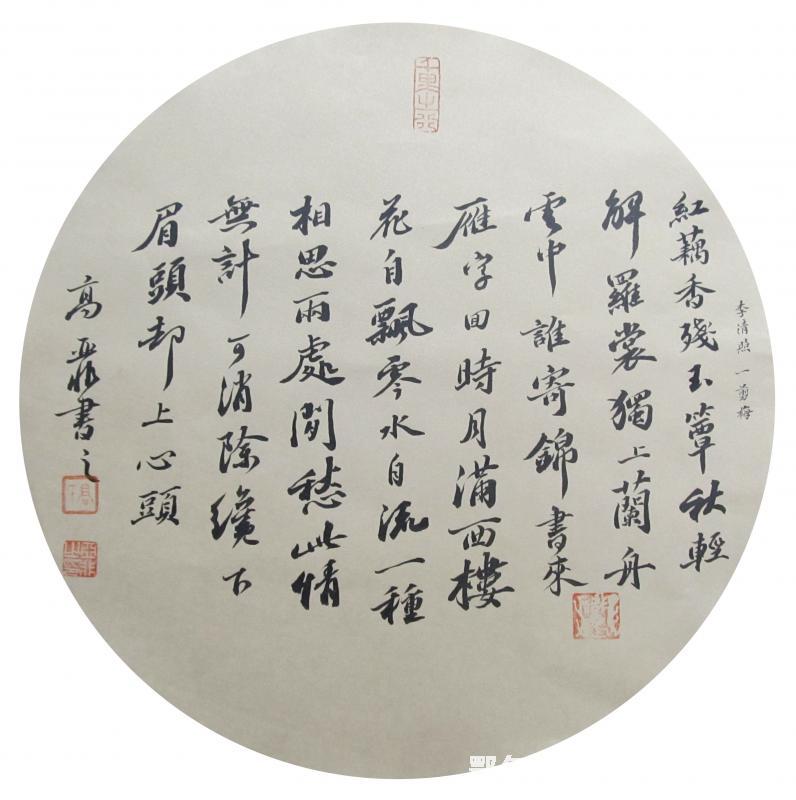 李清照一剪梅
紅藕香殘玉簟秋輕
解羅裳獨上蘭舟
雲中誰寄錦書來
雁字回時月滿西樓
花自飄零水自流一種
相思兩處閒愁此情
無計可消除纔下
眉頭却上心頭
高亞非書之